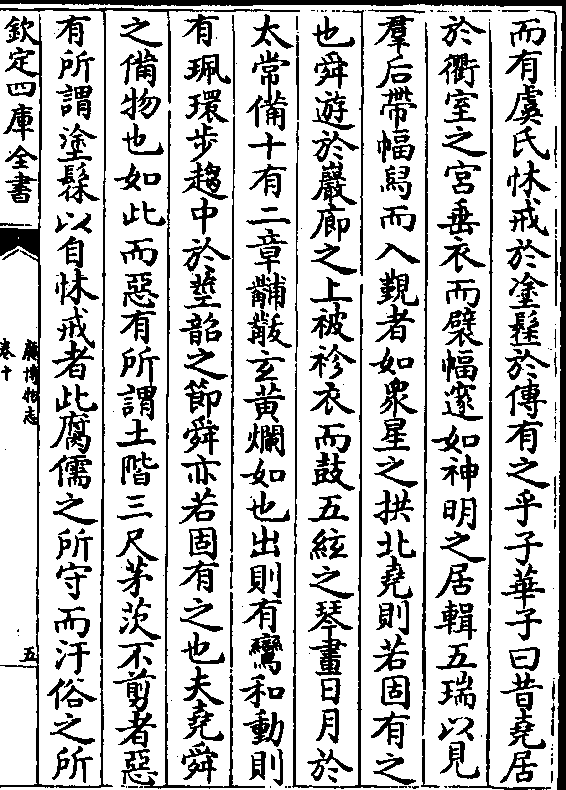 而有虞氏怵戒於塗髹於傳有之乎子華子曰昔堯居
於衢室之宮垂衣而襞幅邃如神明之居輯五瑞以見
羣后帶幅舄而入覲者如衆星之拱北堯則若固有之
也舜遊於巖廊之上被袗衣而鼓五絃之琴畫日月於
太常備十有二章黼黻玄黃爛如也出則有鸞和動則
有珮環步趨中於莖韶之節舜亦若固有之也夫堯舜
之備物也如此而惡有所謂土階三尺茅茨不剪者惡
有所謂塗髹以自怵戒者此腐儒之所守而汙俗之所
欽定四庫全書
廣博物志
卷十
五